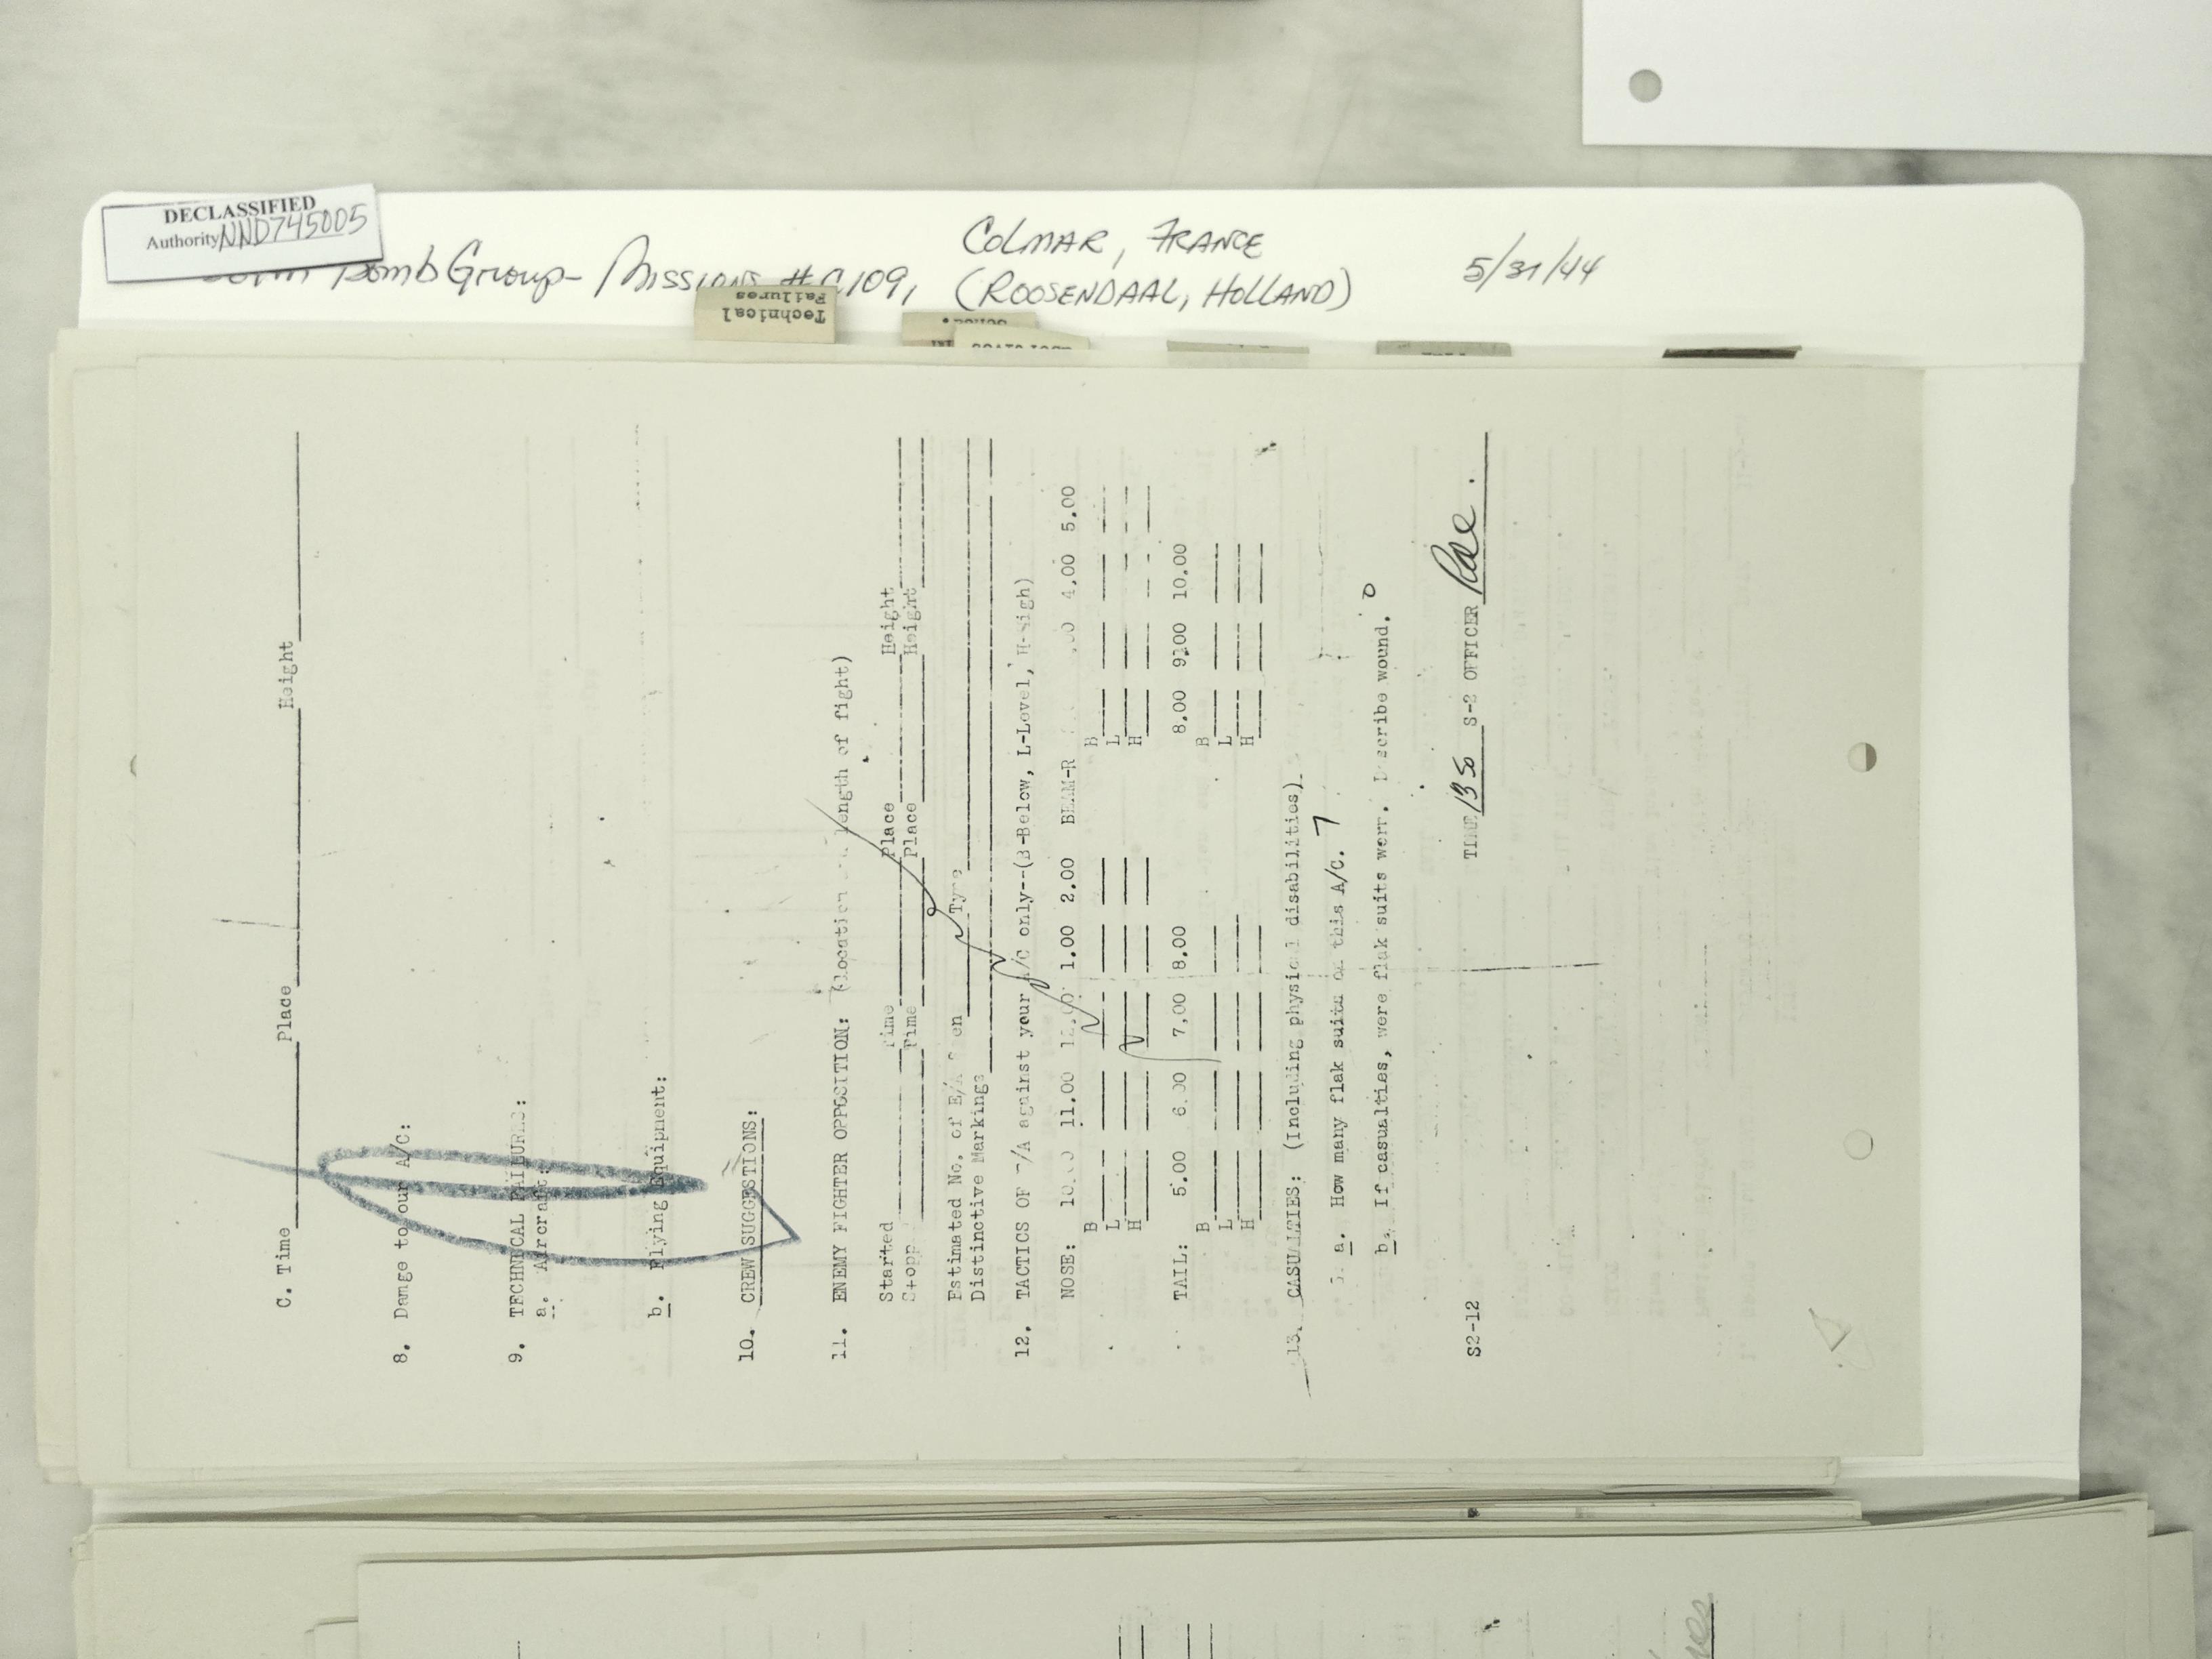 DECLASSIFIED
Authority NND745005
Bomb Group - Missions #C109, COLMAR, FRANCE
(ROOSENDAAL, HOLLAND)
5/31/44
Technical
Failures
C. Time Place Height
8. Damage to our A/C:
9. TECHNICAL FAILURES:
a. Aircraft:
b. Flying Equipment:
10. CREW SUGGESTIONS:
11. ENEMY FIGHTER OPPOSITION: (Location length of fight)
Started Time Place Height
Stopp Time Place Height
Estimated No. of E/A en Type
Distinctive Markings
12. TACTICS OF /A against your A/C only--(B-Below, L-Level, H-High)
NOSE: 10.00 11.00 12.00 1.00 2.00 BEAM-R 4.00 5.00
B B
L L
H H
TAIL: 5.00 6.00 7.00 8.00 8.00 9.00 10.00
B B
L L
H H
13. CASUALTIES: (Including physical disabilities)
a. How many flak suits on this A/C. 7
b. If casualties, were flak suits worn. Describe wound. 0
S2-12 TIME 1350 S-2 OFFICER